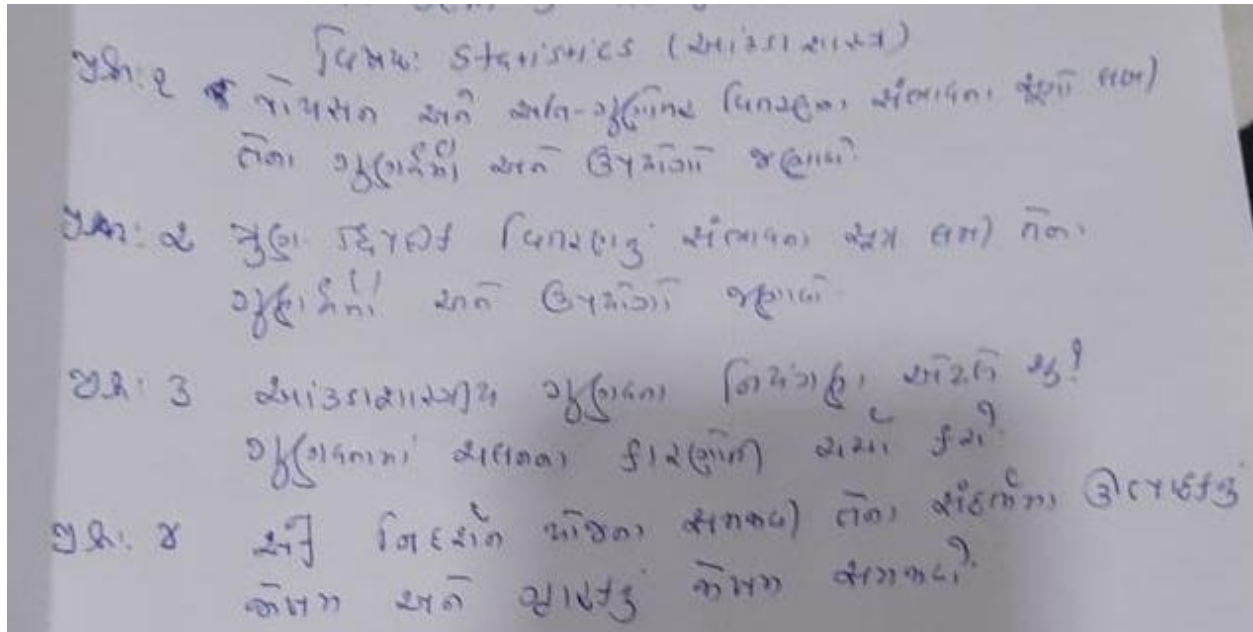 વિષય: Statistics (આંકડાશાસ્ત્ર)
પ્રશ્ન: ૧ પોયસન અને અતિ-ગુણોત્તર વિતરણના સંભાવના સૂત્રો લખી
તેના ગુણધર્મો અને ઉપયોગો જણાવો.
પ્રશ્ન: ૨ ઋણ દ્વિપદી વિતરણનું સંભાવના સૂત્ર લખી તેના
ગુણધર્મો અને ઉપયોગો જણાવો.
પ્રશ્ન: 3 આંકડાશાસ્ત્રીય ગુણવત્તા નિયંત્રણ એટલે શું?
ગુણવત્તામાં ચલનના કારણોની ચર્ચા કરો.
પ્રશ્ન: ૪ નિદર્શન યોજના સમજાવી તેના સંદર્ભમાં ઉત્પાદકનું
જોખમ અને ગ્રાહકનું જોખમ સમજાવો.